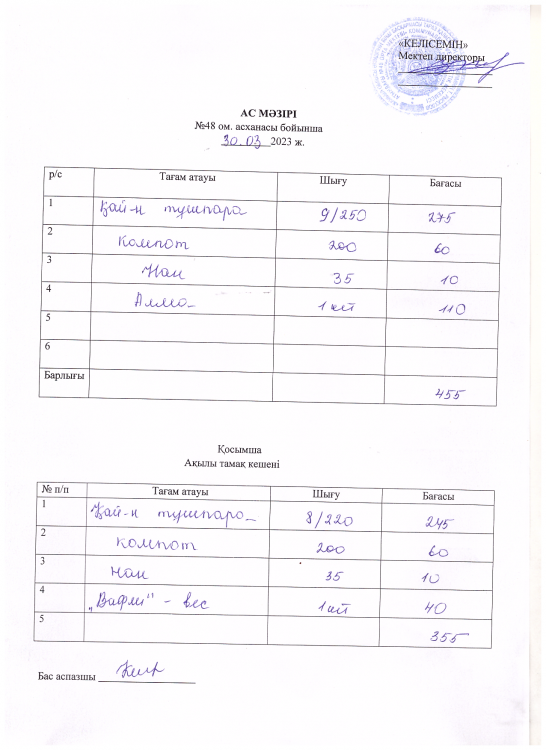 «КЕЛІСЕМІН»
Мектеп директоры
АС МӘЗІРІ
№48 ом. асханасы бойынша
30.03 2023 ж.
р/с Тағам атауы Шығу Бағасы
1 Қай-н тушпара 9/250 275
2 Компот 200 60
3 Нан 35 10
4 Алма 1 шт 110
5
6
Барлығы 455
Қосымша
Ақылы тамақ кешені
№ п/п Тағам атауы Шығу Бағасы
1 Қай-н тушпара 8/220 245
2 компот 200 60
3 нан 35 10
4 „Вафли" - вес 1 шт 40
5 355
Бас аспазшы